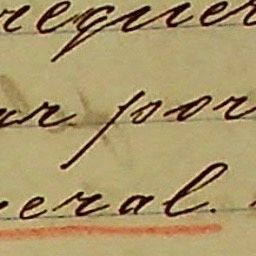 requer
ar por
eral.